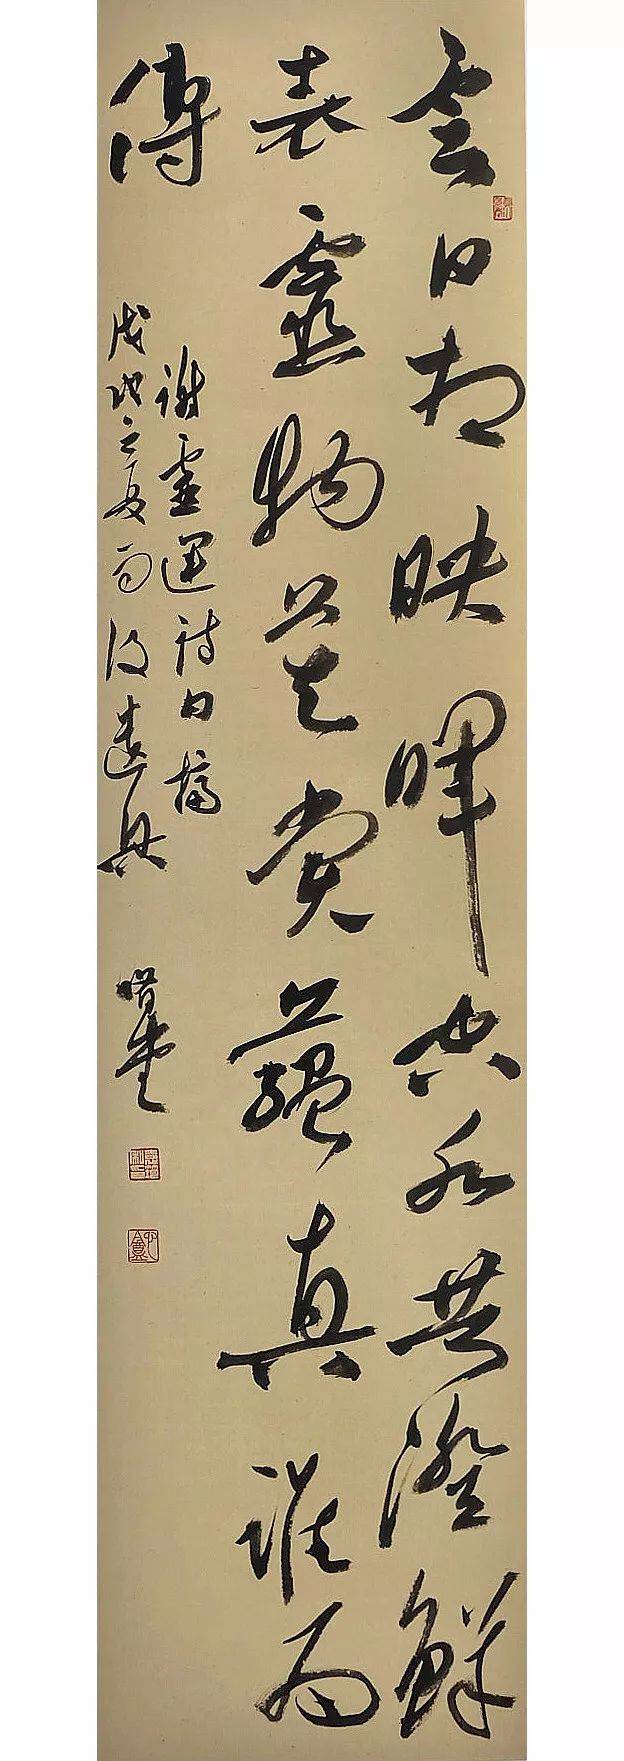 雲日相映暉空水共澄鮮
表靈物莫賞蘊真誰為
傳
謝靈運詩句摘
戊戌之夏雨後遣興